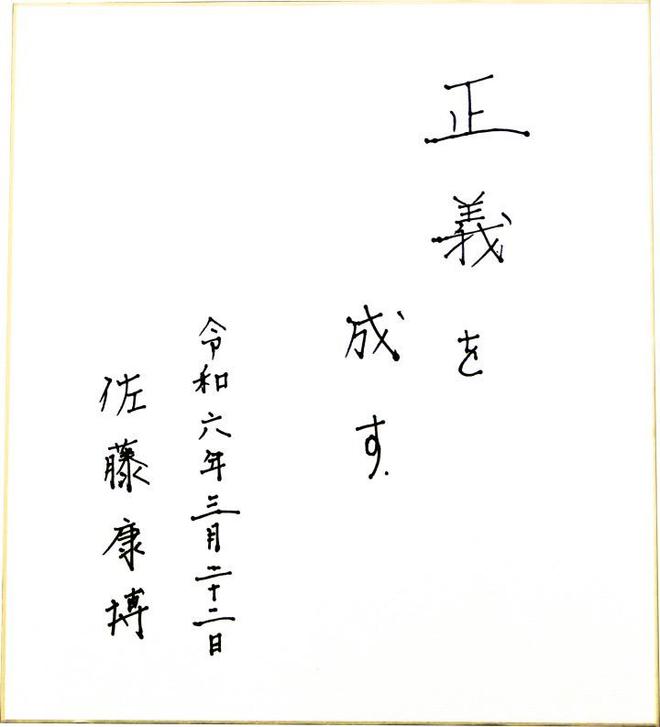 正義を
成す.
令和六年三月二十二日
佐藤康博